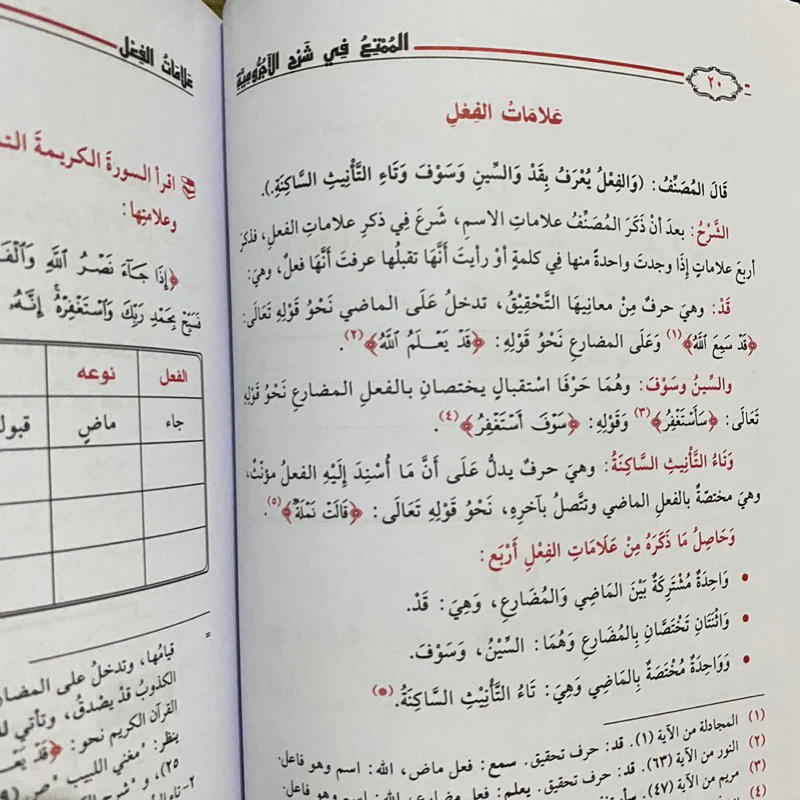 ٢٠
المُمْتِعُ فِي شَرْحِ الآجُرُّومِيَّةِ
عَلامَاتُ الفِعْلِ
قَالَ المُصَنِّفُ: (وَالفِعْلُ يُعْرَفُ بِقَدْ وَالسِّينِ وَسَوْفَ وَتَاءِ التَّأْنِيثِ السَّاكِنَةِ.).
الشَّرْحُ: بعدَ أنْ ذَكَرَ المُصَنِّفُ علاماتِ الاسمِ، شَرعَ فِي ذكرِ علاماتِ الفعلِ، فذكرَ
أربعَ علاماتٍ إذَا وجدتَ واحدةً منها فِي كلمةٍ أوْ رأيتَ أنَّهَا تقبلُها عرفتَ أنَّهَا فعلٌ، وهيَ:
قَدْ: وهيَ حرفٌ مِنْ معانِيهَا التَّحْقِيقُ، تدخلُ عَلَى الماضي نَحْوُ قَوْلِهِ تَعَالَى:
﴿قَدْ سَمِعَ ٱللَّهُ﴾(١) وَعَلَى المضارعِ نَحْوُ قَوْلِهِ: ﴿قَدْ يَعْلَمُ ٱللَّهُ﴾(٢).
والسِّينُ وسَوْفَ: وهُمَا حَرْفَا اسْتقبالٍ يختصانِ بالفعلِ المضارعِ نَحْوُ قَوْلِهِ
تَعَالَى: ﴿سَأَسْتَغْفِرُ﴾(٣) وَقَوْلِهِ: ﴿سَوْفَ أَسْتَغْفِرُ﴾(٤).
وَتَاءُ التَّأْنِيثِ السَّاكِنَةُ: وهيَ حرفٌ يدلُّ عَلَى أَنَّ مَا أُسْنِدَ إِلَيْهِ الفعلُ مؤنّثٌ،
وهيَ مختصّةٌ بالفعلِ الماضي وتتَّصلُ بآخرِهِ، نَحْوُ قَوْلِهِ تَعَالَى: ﴿قَالَتْ نَمْلَةٌ﴾(٥).
وَحَاصِلُ مَا ذَكَرَهُ مِنْ عَلَامَاتِ الفِعْلِ أَرْبَع:
• وَاحِدَةٌ مُشْتَرِكَةٌ بَيْنَ المَاضِي وَالمُضَارِعِ، وَهِيَ: قَدْ.
• وَاثْنَتَانِ تَخْتَصَّانِ بِالمُضَارِعِ وَهُمَا: السِّيْنُ، وَسَوْفَ.
• وَوَاحِدَةٌ مُخْتَصَةٌ بِالمَاضِي وَهِيَ: تَاءُ التَّأْنِيْثِ السَّاكِنَةُ.(*)
(١) المجادلة من الآية (١). قد: حرف تحقيق. سمع: فعل ماض، الله: اسم وهو فاعل.
(٢) النور من الآية (٦٣). قد: حرف تحقيق. يعلم: فعل مضارع، الله: اسم وهو فاعل.
(٣) مريم من الآية (٤٧).
(٤)
عَلامَاتُ الفِعْل
اقرأ السورةَ الكريمةَ
وعلامتِها:
﴿إِذَا جَآءَ نَصْرُ ٱللَّهِ
فَسَبِّحْ بِحَمْدِ رَبِّكَ وَٱسْتَغْفِرْهُ إِنَّهُ
الفعل نوعه
جاء ماضٍ
= قيامُها، وتدخلُ على
الكذوبُ قدْ يصْدقُ، وتأتي
القرآن الكريم نحو: ﴿قَدْ
ينظر: "مغني اللبيب" ص
٢٥)، و"شرح